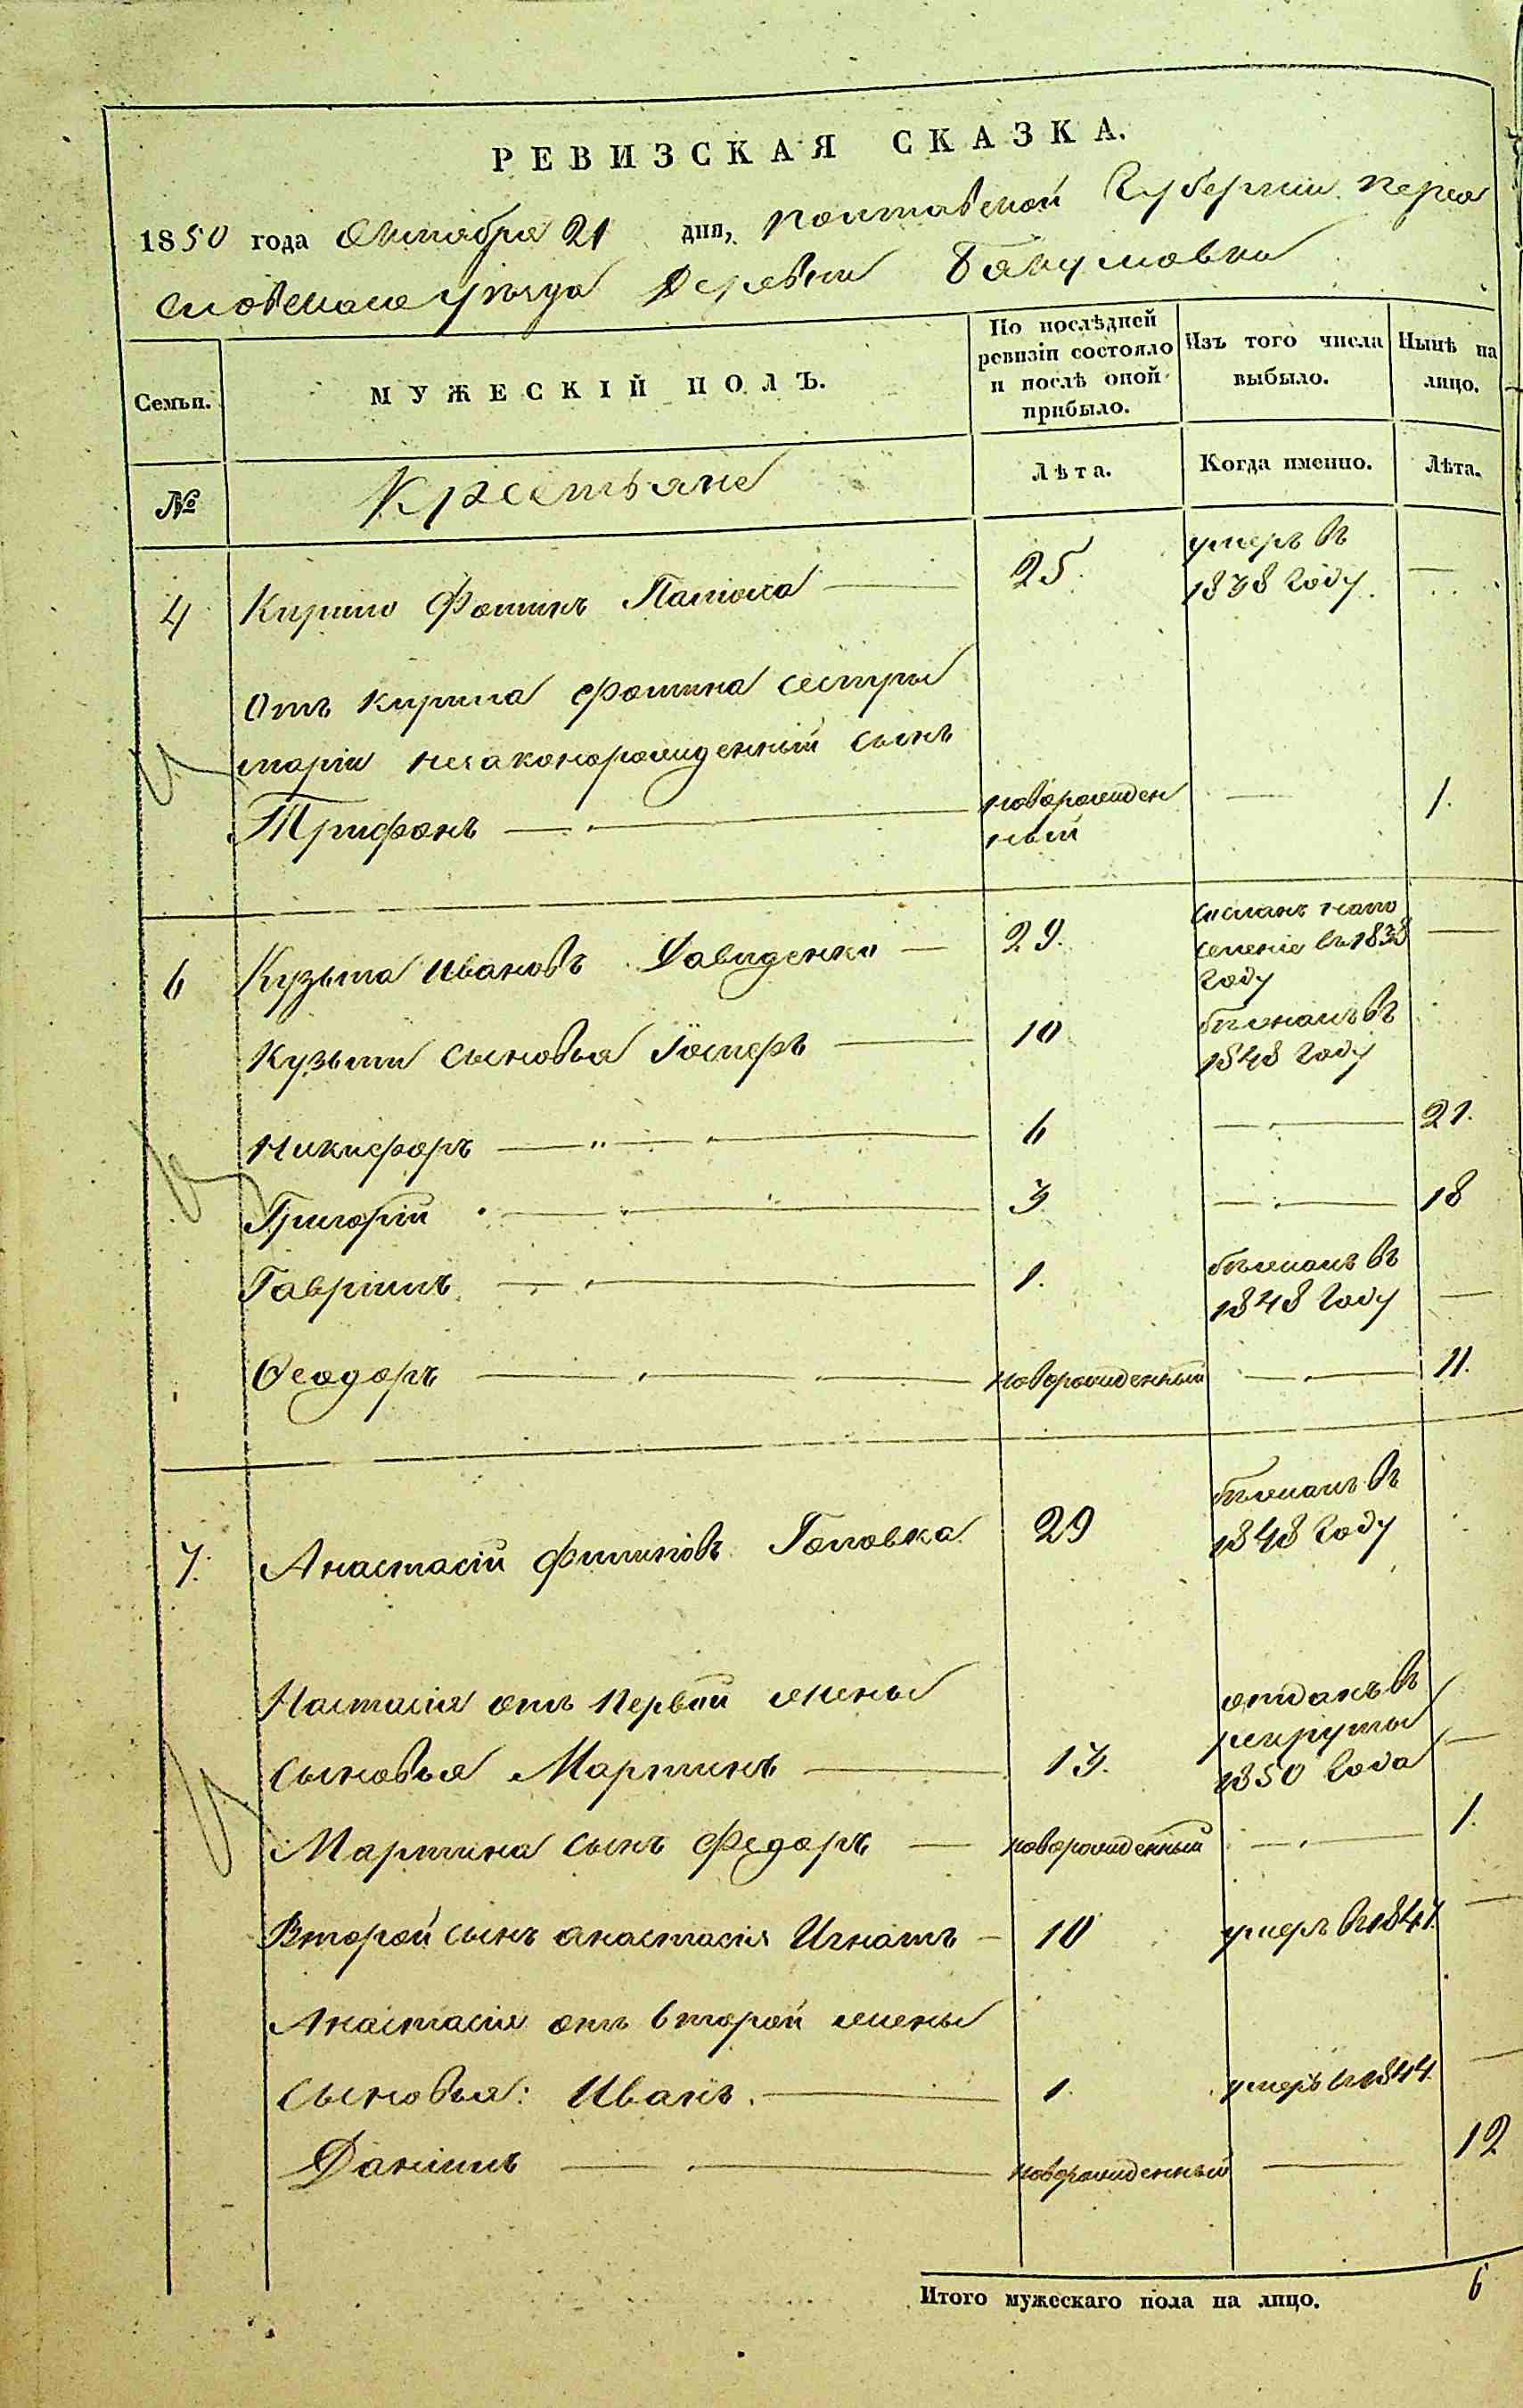 РЕВИЗСКАЯ СКАЗКА.
1850 года Октября 21 дня, Полтавской Губернии Перея
славскаго уѣзда Деревни Бакумовки
Семьи.
МУЖЕСКІЙ ПОЛЪ.
По послѣдней ревизіи состояло и послѣ оной прибыло.
Изъ того числа выбыло.
Нынѣ на лицо.
№
Крестьяне
Лѣта.
Когда именно.
Лѣта.
4 Кирило Фоминъ — 25. умеръ въ
1838 году. —
Отъ Кирила Фомина сестры
Маріи незаконорожденный сынъ
Трифонъ — новорожден
ный — 1.
6 Кузьма Ивановъ Давиденко — 29. сосланъ на по
селеніе въ 1838
году —
Кузьмы сыновья — 10 бѣжалъ въ
1848 году
Никифоръ — " — 6 — 21.
Григорій — 3 — 18
Гавріилъ — 1. бѣжалъ въ
1848 году —
Ѳеодоръ — новорожденный — 11.
7. Анастасій Филиповъ Головка 29 бѣжалъ въ
1848 году
Настасія отъ первой жены
сыновья Мартинъ — 13. отданъ въ
рекруты
1850 года —
Мартина сынъ Федоръ — новорожденный — 1.
Второй сынъ Анастасія Игнатъ — 10 умеръ въ 1847. —
Анастасія отъ второй жены
сыновья: Иванъ. — 1. умеръ въ 1844. —
Даніилъ — новорожденный — 12
Итого мужескаго пола на лицо. 6